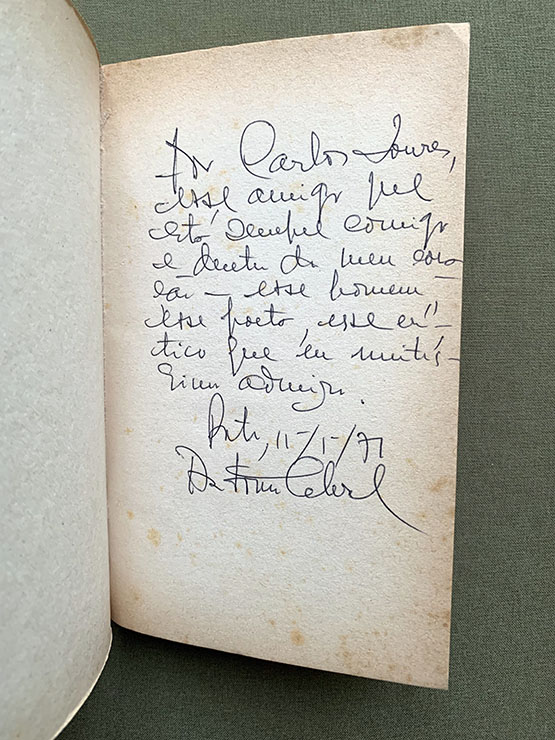 Por Carlos Soures,
esse amigo que
está sempre comigo
e dentro do meu cora-
ção — esse homem
esse poeta, esse crí-
tico que eu muitís-
simo admiro.
11-/1-/71
Cabral